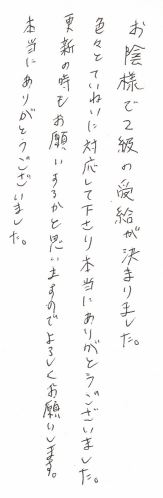 お陰様で2級の受給が決まりました。
色々とていねいに対応して下さり本当にありがとうございました。
更新の時もお願いするかと思いますのでよろしくお願いします。
本当にありがとうございました。